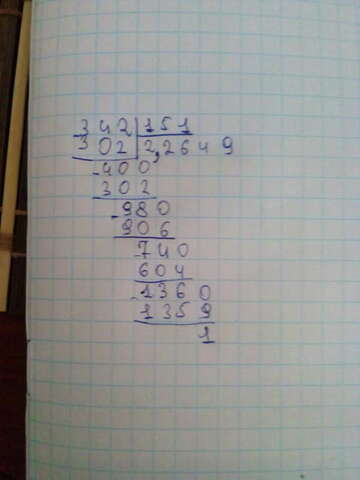 -342 151
302 2,2649
-400
302
-980
906
-740
604
-1360
1359
1